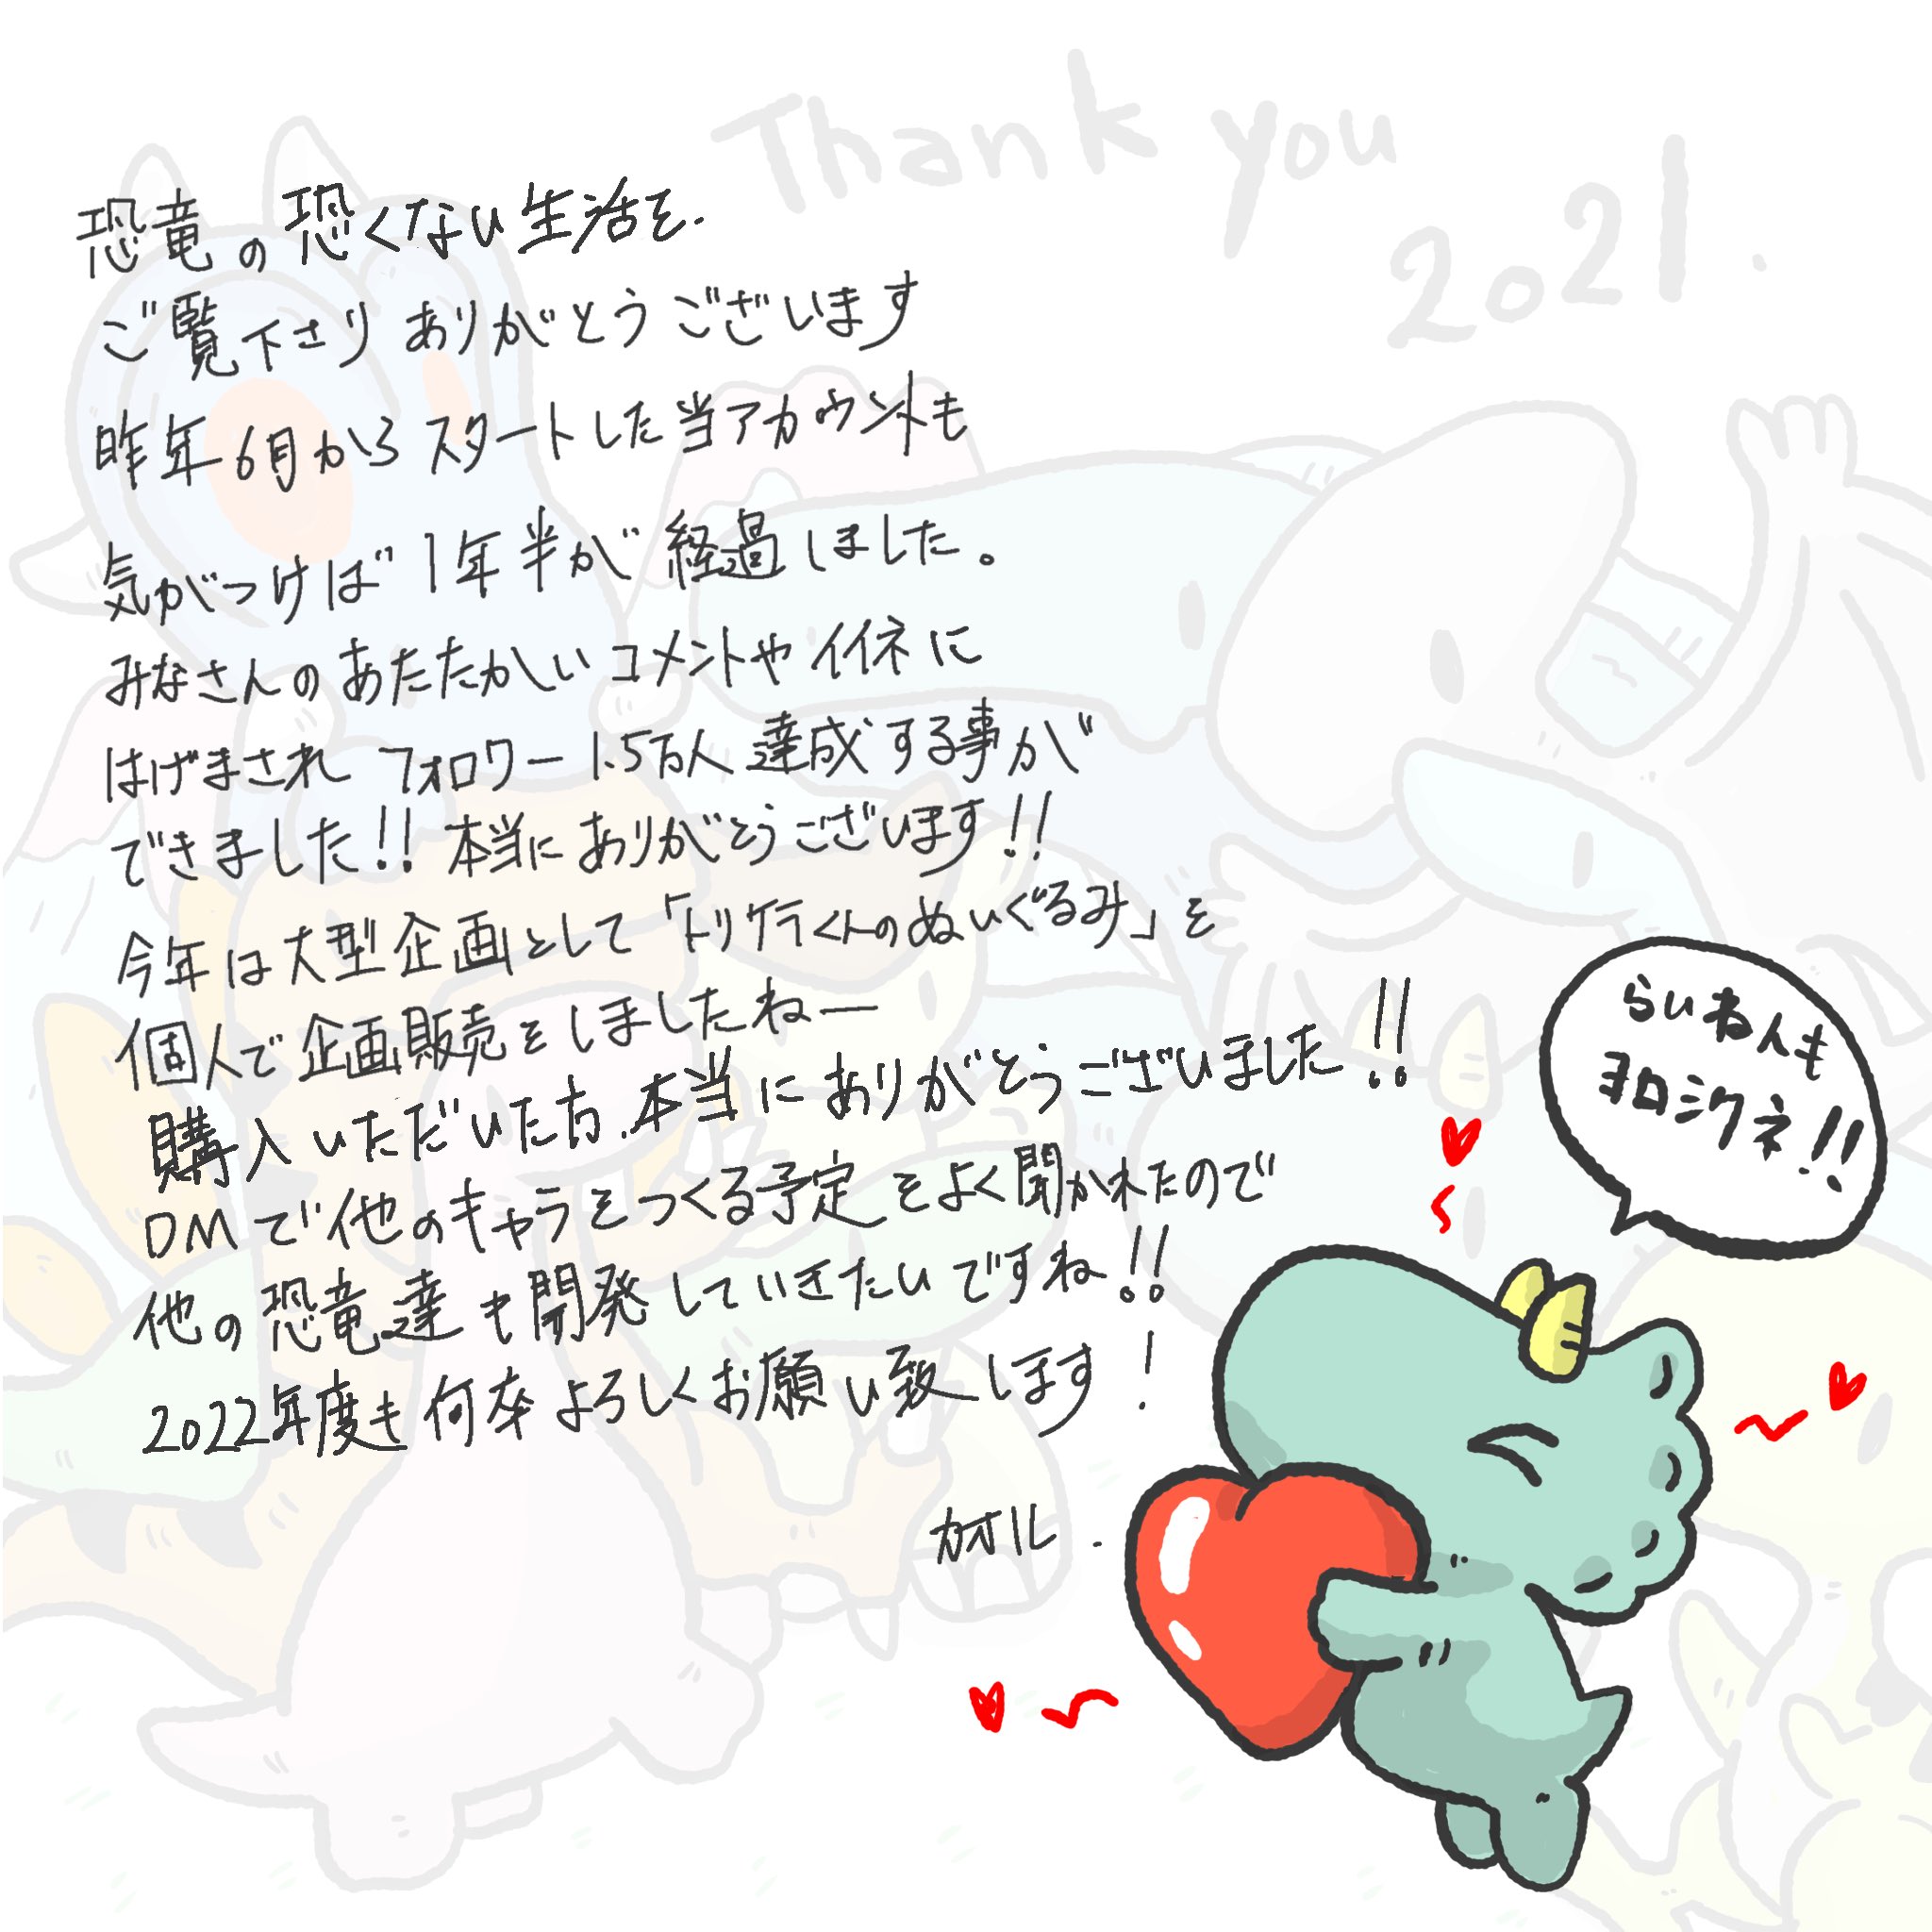 Thank you
2021.
恐竜の恐くない生活を.
ご覧下さりありがとうございます
昨年6月からスタートした当アカウントも
気がつけば1年半が経過しました。
みなさんのあたたかしいコメントやイイネに
はげまされフォロワー1.5万人達成する事が
できました!!本当にありがとうございます!!
今年は大型企画として「トリケラくんのぬいぐるみ」を
個人で企画販売をしましたねー
購入いただいた方、本当にありがとうございました!!
DMで他のキャラをつくる予定をよく聞かれたので
他の恐竜達も開発していきたいですね!!
2022年度も何卒よろしくお願い致します!
カオル.
らいねんも
ヨロシクネ!!